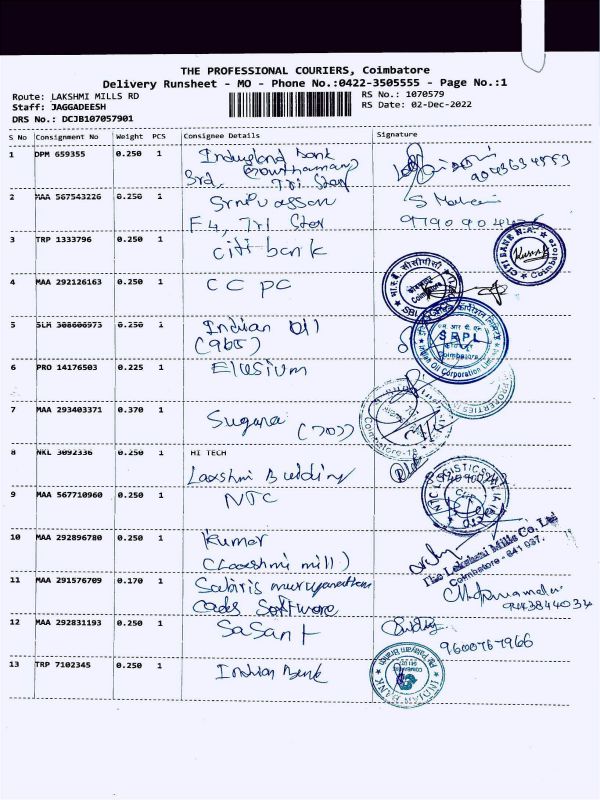 THE PROFESSIONAL COURIERS, Coimbatore
Delivery Runsheet - MO - Phone No.:0422-3505555 - Page No.:1
Route: LAKSHMI MILLS RD
Staff: JAGGADEESH
DRS No.: DCJB107057901
RS No.: 1070579
RS Date: 02-Dec-2022
S No Consignment No Weight PCS Consignee Details Signature
1 DPM 659355 0.250 1 Bank
3rd, 7ri Star
2 MAA 567543226 0.250 1
F4, 7ri Star
3 TRP 1333796 0.250 1 Citi bank
CITI BANK N.A. Coimbatore
4 MAA 292126163 0.250 1 CCPC
5 SLM 308606973 0.250 1 Indian Oil
(965)
SRPL
Coimbatore
Indian Oil Corporation Limited
6 PRO 14176503 0.225 1 Elusium
7 MAA 293403371 0.370 1 Suguna
(701)
Coimbatore-18
8 NKL 3092336 0.250 1 HI TECH
Laxshmi Building
9 MAA 567710960 0.250 1 NTC
NTC LOGISTICS
10 MAA 292896780 0.250 1 Kumar
(Laxshmi mill)
The Lakshmi Mills Co. Ltd
Coimbatore - 641 037.
11 MAA 291576709 0.170 1
Cads Software
12 MAA 292831193 0.250 1 Sasant
9600767966
13 TRP 7102345 0.250 1 Indian Bank
INDIAN BANK